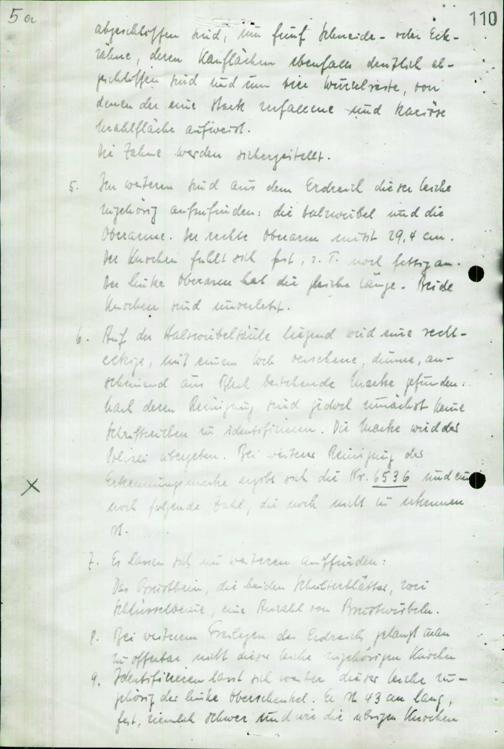 5a
110
abgeschloffen sind, um fünf Schneide- oder Eck-
zähne, deren Kauflächen ebenfalls deutlich ab-
geschloffen sind und um vier Wurzelreste, von
denen der eine stark zerfallene und kariöse
Mahlfläche aufweist.
Die Zähne werden sichergestellt.
5. Im weiteren sind aus dem Erdreich dieser Leiche
zugehörig aufzufinden: die Halswirbel und die
Oberarme. Der rechte Oberarm misst 29,4 cm.
Der Knochen fühlt sich fest, z. T. noch fettig an.
Der linke Oberarm hat die gleiche Länge. Beide
Knochen sind unverletzt.
6. Auf der Halswirbelsäule liegend wird eine recht-
eckige, mit einem Loch versehene, dünne, an-
scheinend aus Blech bestehende Marke gefunden.
Nach deren Reinigung sind jedoch zunächst keine
Schriftzeichen zu identifizieren. Die Marke wird der
Polizei übergeben. Bei weiterer Reinigung der
Erkennungsmarke ergibt sich die Nr. 6536 und eine
noch folgende Zahl, die noch nicht zu erkennen
ist.
7. Es lassen sich im weiteren auffinden:
Das Brustbein, die beiden Schulterblätter, zwei
Schlüsselbeine, eine Anzahl von Brustwirbeln.
8. Bei weiterem Freilegen des Erdreichs gelangt man
zu offenbar nicht dieser Leiche zugehörigen Knochen
9. Identifizieren lässt sich weiter dieser Leiche zu-
gehörig der linke Oberschenkel. Er ist 43 cm lang,
fest, ziemlich schwer und wie die übrigen Knochen